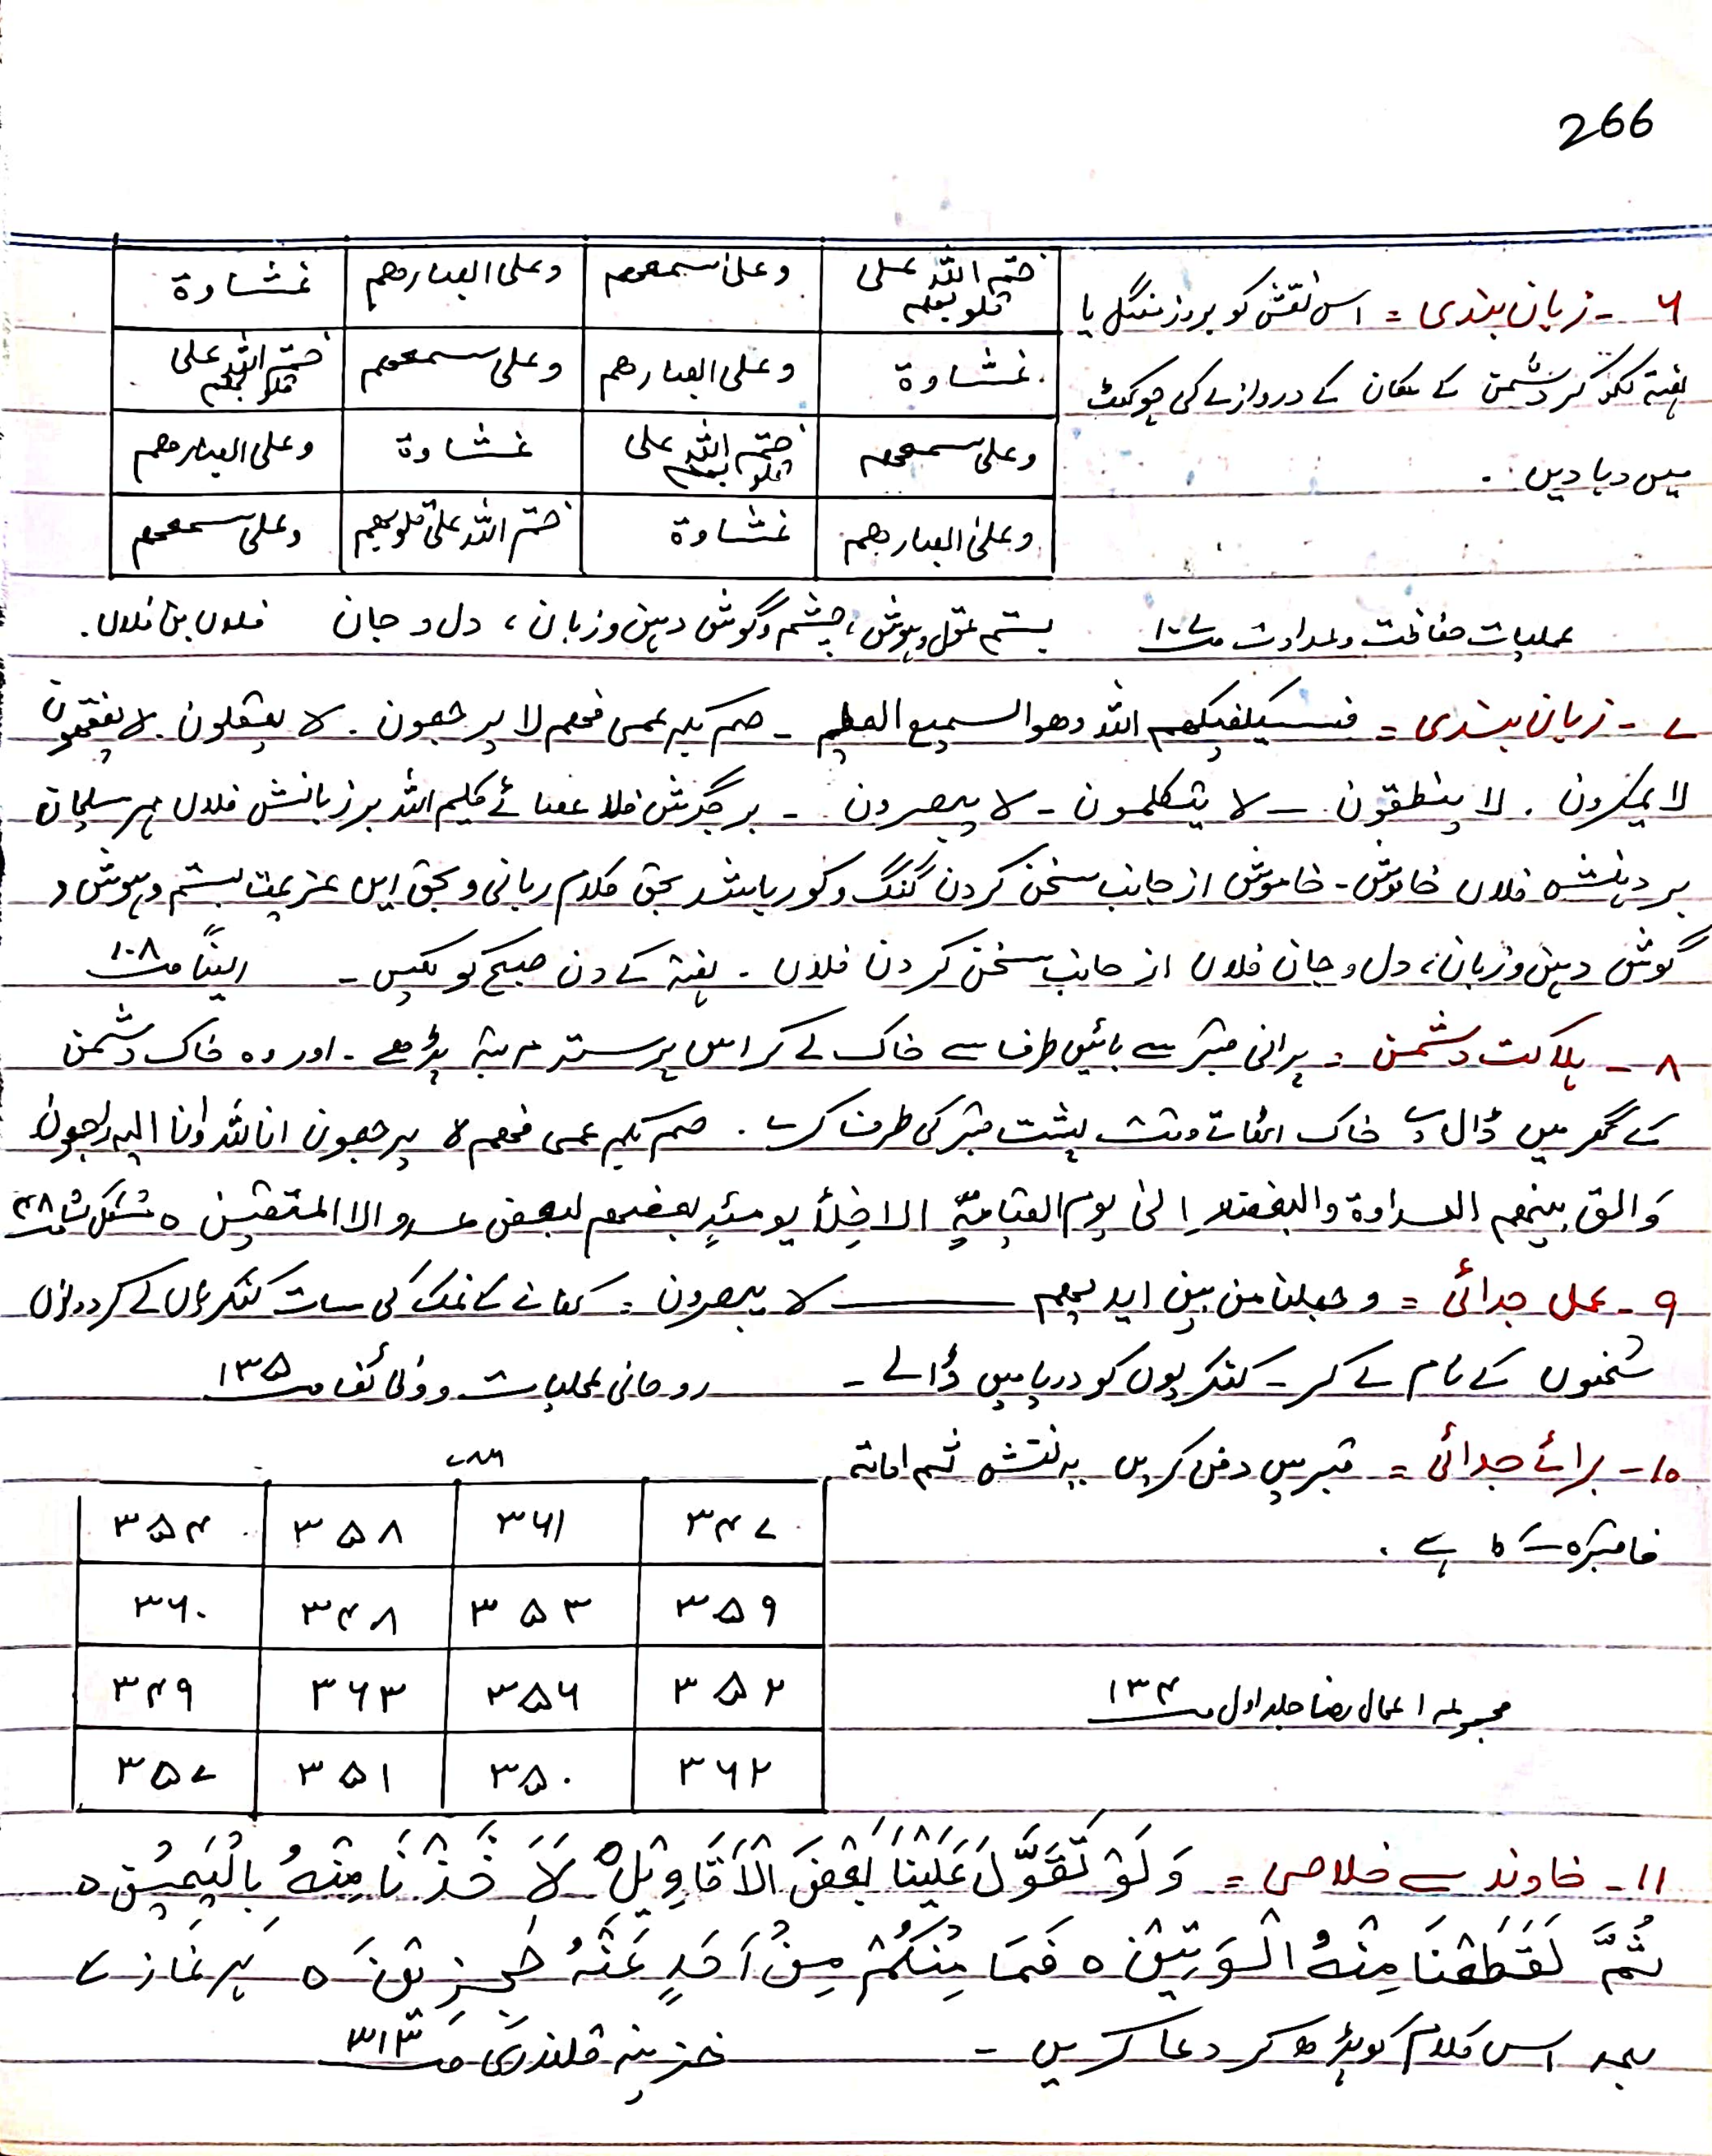 266
۶ - زبان بندی = اس نقش کو بروز منگل یا
ہفتہ لکھ کر دشمن کے مکان کے دروازے کی چوکھٹ
میں دبا دیں .
ختم اللہ علی قلوبھم | وعلی سمعھم | وعلی ابصارھم | غشاوة
غشاوة | وعلی ابصارھم | وعلی سمعھم | ختم اللہ علی قلوبھم
وعلی سمعھم | ختم اللہ علی قلوبھم | غشاوة | وعلی ابصارھم
وعلی ابصارھم | غشاوة | ختم اللہ علی قلوبھم | وعلی سمعھم
عملیات حفاظت وعداوت ص۱۰۷ بستم عقل وہوش، چشم وگوش دہن وزبان، دل وجان فلاں بن فلاں.
۷ - زبان بندی = فسیکفیکھم اللہ وھو السمیع العلیم - صم بکم عمی فھم لا یرجعون . لا یعقلون . لا یفقھون
لا یمکرون . لا ینطقون - لا یتکلمون - لا یبصرون - بر جگرش فلا عصائے کلیم اللہ بر زبانش فلاں مہر سلیمان
بر دہنش فلاں خاموش - خاموش از جانب سخن کردن گنگ وکور باشد بحق کلام ربانی وبحق ایں عزیمت بستم وہوش و
گوش دہن وزبان، دل وجان فلاں از جانب سخن کردن فلاں . ہفتہ کے دن صبح کو لکھیں - ایضاً ص۱۰۸
۸ - ہلاکت دشمن = پرانی قبر سے بائیں طرف سے خاک لے کر اس پر ستر مرتبہ پڑھے - اور وہ خاک دشمن
کے گھر میں ڈال دے خاک اٹھاتے وقت پشت قبر کی طرف کرے . صم بکم عمی فھم لا یرجعون انا للہ وانا الیہ راجعون
والق بینھم العداوة والبغضاء الی یوم القیامة الاخلاء یومئذ بعضھم لبعض عدو الا المتقین ٥
۹ - عمل جدائی = وجعلنا من بین ایدیھم ——— لا یبصرون = کھانے کے نمک کی سات کنکریاں لے کر دونوں
شخصوں کے نام لے کر - کنکریوں کو دریا میں ڈالے - روحانی عملیات ووظائف ص۱۳۵
۱۰ - برائے جدائی = قبر میں دفن کریں یہ نقش ثم اماتہ
فاقبرہ کا ہے .
۷۸۶
۳۴۷ | ۳۶۱ | ۳۵۸ | ۳۵۴
۳۵۹ | ۳۵۳ | ۳۴۸ | ۳۶۰
۳۵۲ | ۳۵۶ | ۳۶۳ | ۳۴۹
۳۶۲ | ۳۵۰ | ۳۵۱ | ۳۵۷
مجموعہ اعمال رضا جلد اول ص۱۳۴
۱۱ - خاوند سے خلاصی = وَلَوْ تَقَوَّلَ عَلَيْنَا بَعْضَ الْاَقَاوِيْلِ ٥ لَاَخَذْنَا مِنْهُ بِالْيَمِيْنِ ٥
ثُمَّ لَقَطَعْنَا مِنْهُ الْوَتِيْنَ ٥ فَمَا مِنْكُمْ مِنْ اَحَدٍ عَنْهُ حٰجِزِيْنَ ٥ ہر نماز کے
بعد اس کلام کو پڑھ کر دعا کریں - خزینہ قلندری ص۳۱۳